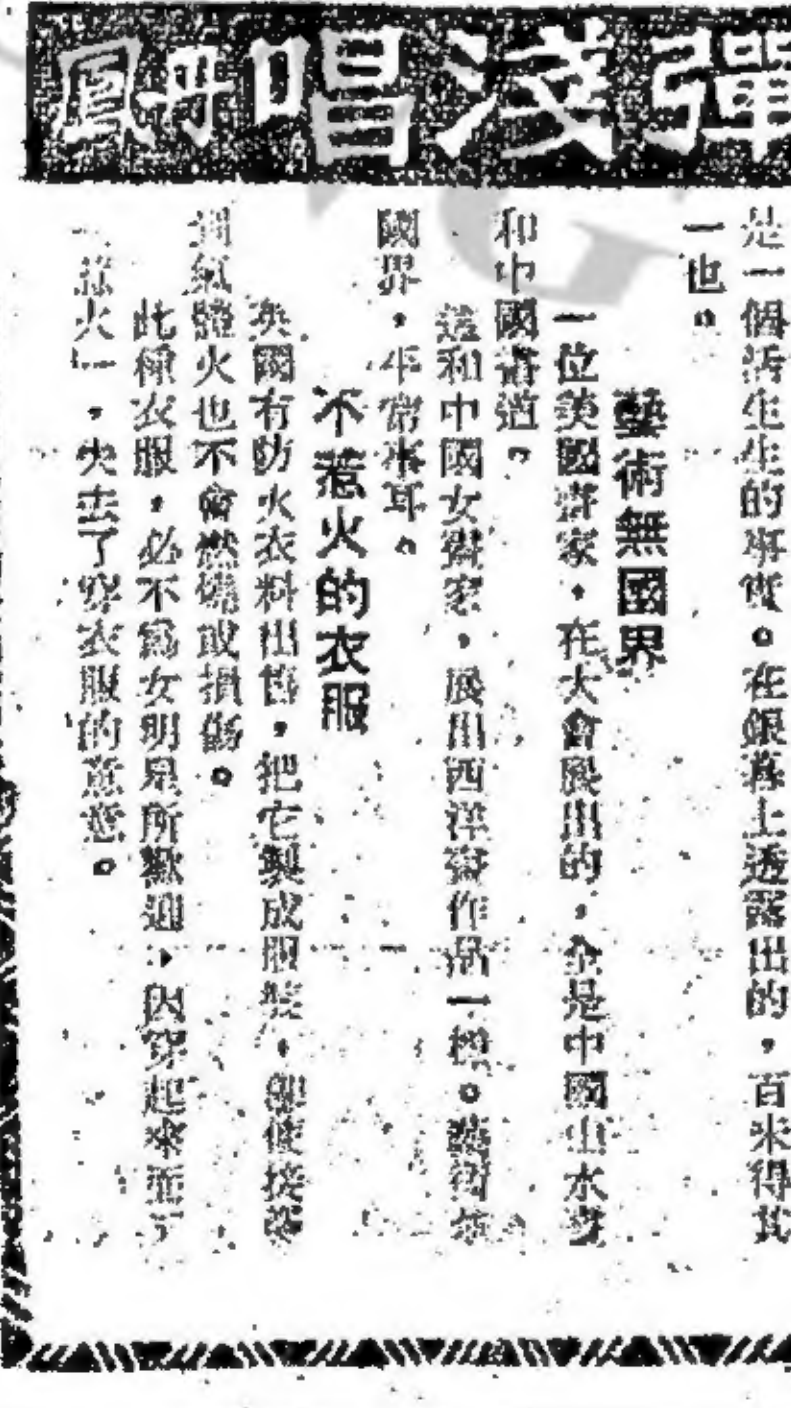 彈淺唱丹鳳
是一個活生生的事實。在銀幕上透露出的,百未得其
一也。
藝術無國界
一位美國畫家,在大會展出的,全是中國山水畫
和中國書道。
這和中國女畫家,展出西洋畫作品一樣。藝術無
國界,平常事耳。
不惹火的衣服
英國有防火衣料出售,把它製成服裝,即使接
到氣體火也不會燃燒或損傷。
此種衣服,必不為女明星所歡迎,因穿起來並不
「惹火」,失去了穿衣服的意